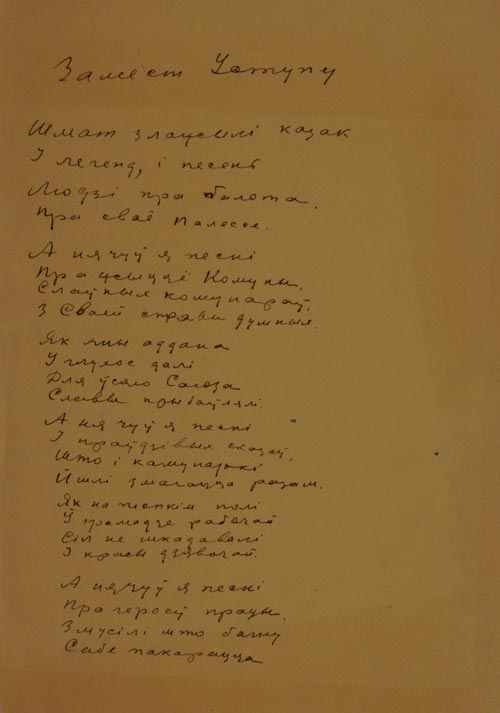 Замест Уступу
Шмат злажылі казак
І легенд, і песень
Людзі пра балота,
Пра сваё Палессе.
А ня чуў я песні
Пра жыццё Комуны,
Слаўных комунараў,
З сваей справы думных.
Як яны аддана
У глухое далі
Для ўсяго Саюза
Славы прыбаўлялі.
А ня чуў я песні
І праўдзівых сказаў,
Што і камунаркі
Йшлі змагацца разам.
Як на топкім полі
У грамадзе рабочай
Сіл не шкадавалі
І красы дзявочай.
А ня чуў я песні
Пра герояў працы,
Змусілі што багну
Сабе пакарацца